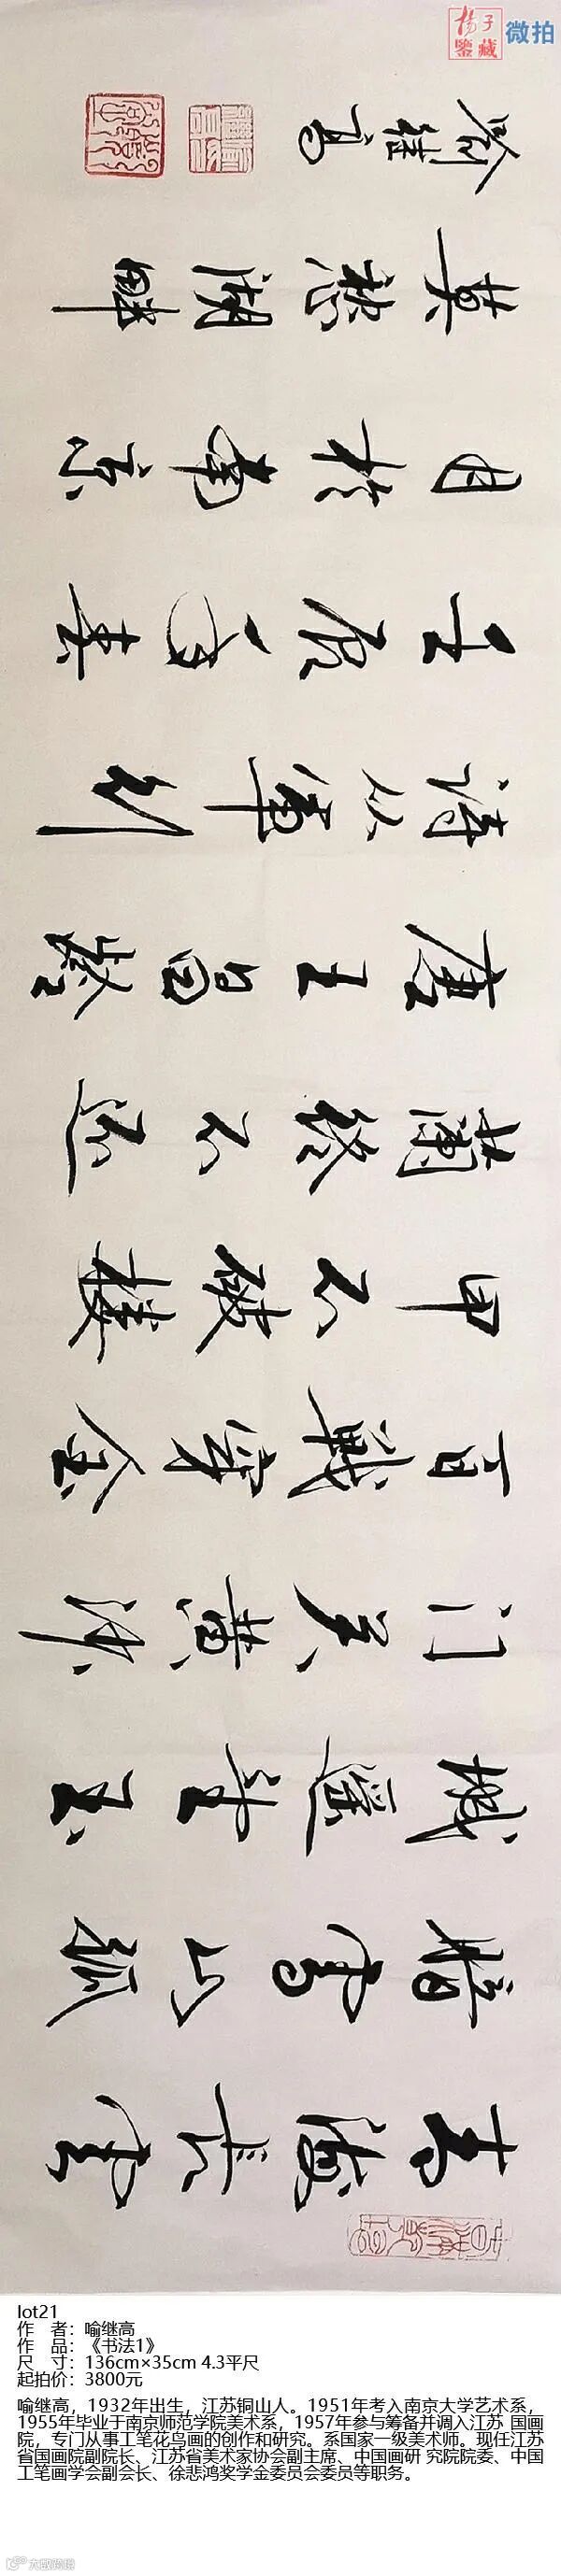 揚子
鑒藏 微拍
青海长雲
暗雪山孤
城遥望玉
门关黄沙
百戰穿金
甲不破楼
蘭终不还
唐王昌龄
诗从军行
壬辰年春
月於南京
莫愁湖畔
喻继高
lot21
作 者：喻继高
作 品：《书法1》
尺 寸：136cm×35cm 4.3平尺
起拍价：3800元
喻继高，1932年出生，江苏铜山人。1951年考入南京大学艺术系，
1955年毕业于南京师范学院美术系，1957年参与筹备并调入江苏 国画
院，专门从事工笔花鸟画的创作和研究。系国家一级美术师。现任江苏
省国画院副院长、江苏省美术家协会副主席、中国画研 究院院委、中国
工笔画学会副会长、徐悲鸿奖学金委员会委员等职务。